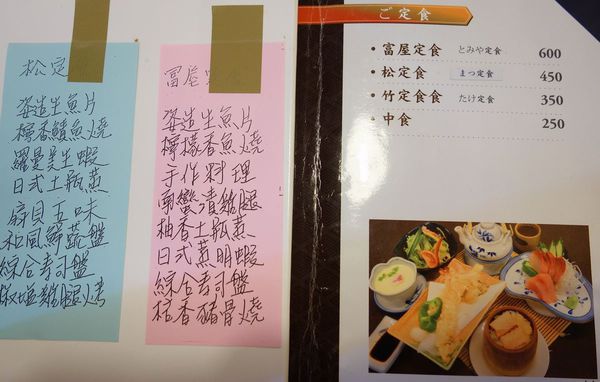 松定
姿造生魚片
檸香鯖魚燒
羅曼美生蝦
日式土瓶蒸
扇貝五味
和風鮮蔬盤
綜合壽司盤
椒塩雞腿烤
富屋
姿造生魚片
檸檬香魚燒
手作料理
南蠻漬雞腿
柚香土瓶蒸
日式蒸明蝦
綜合壽司盤
桔香豬骨燒
ご定食
• 富屋定食 とみや定食 600
• 松定食 まつ定食 450
• 竹定食食 たけ定食 350
• 中食 250